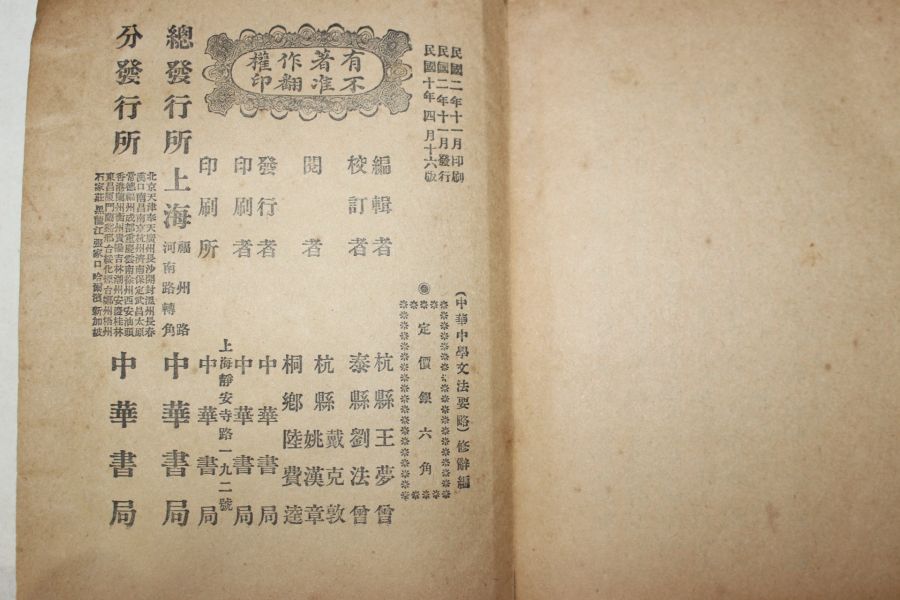 民國二年十一月印刷
民國二年十一月發行
民國十年四月十六版
有著作權
不准翻印
(中華中學文法要略)修辭編
定價銀六角
編輯者 杭縣王夢曾
校訂者 泰縣劉法曾
閱者 杭縣戴克敦
姚漢章
桐鄉陸費逵
發行者 中華書局
印刷者 中華書局
印刷所 上海靜安寺路一九二號
中華書局
總發行所 上海 福州路
河南路轉角
中華書局
分發行所
北京天津奉天廣州長沙開封溫州長春
漢口南昌南京杭州濟南保定武昌太原
常德福州成都重慶雲南徐州西安汕頭
香港蘭州衡州貴陽吉林潮州安慶桂林
東昌廈門蘭谿邢台綏化
石家莊黑龍江張家口哈爾濱新加坡
中華書局